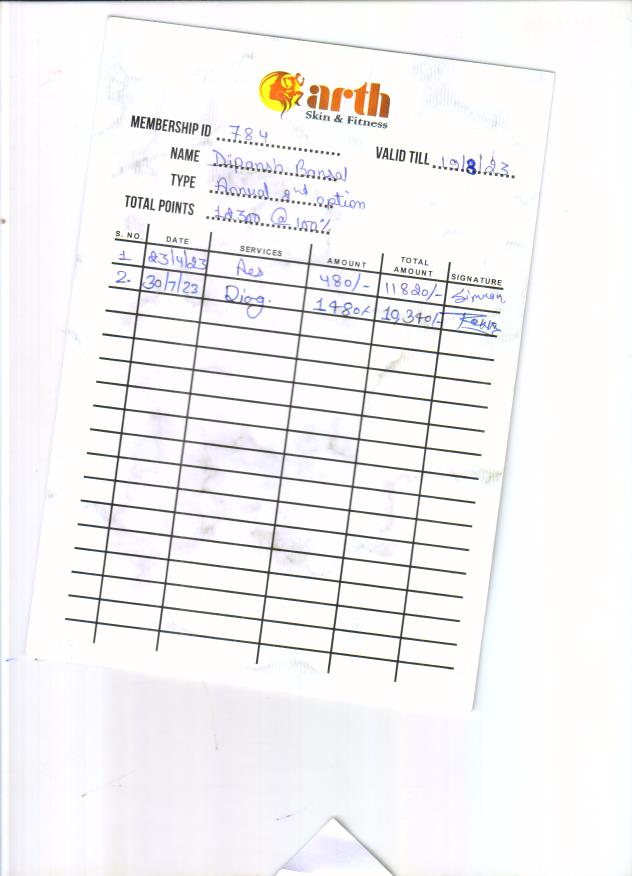 arth
Skin & Fitness
MEMBERSHIP ID 784
NAME Dipansh Bansal
VALID TILL 10/8/23
TYPE Annual 2nd option
TOTAL POINTS 12300 @ 100%
S. NO. DATE SERVICES AMOUNT TOTAL AMOUNT SIGNATURE
1 23/4/23 Aes 480/- 11820/- Simran
2. 30/7/23 Diog. 1480/- 10,340/-